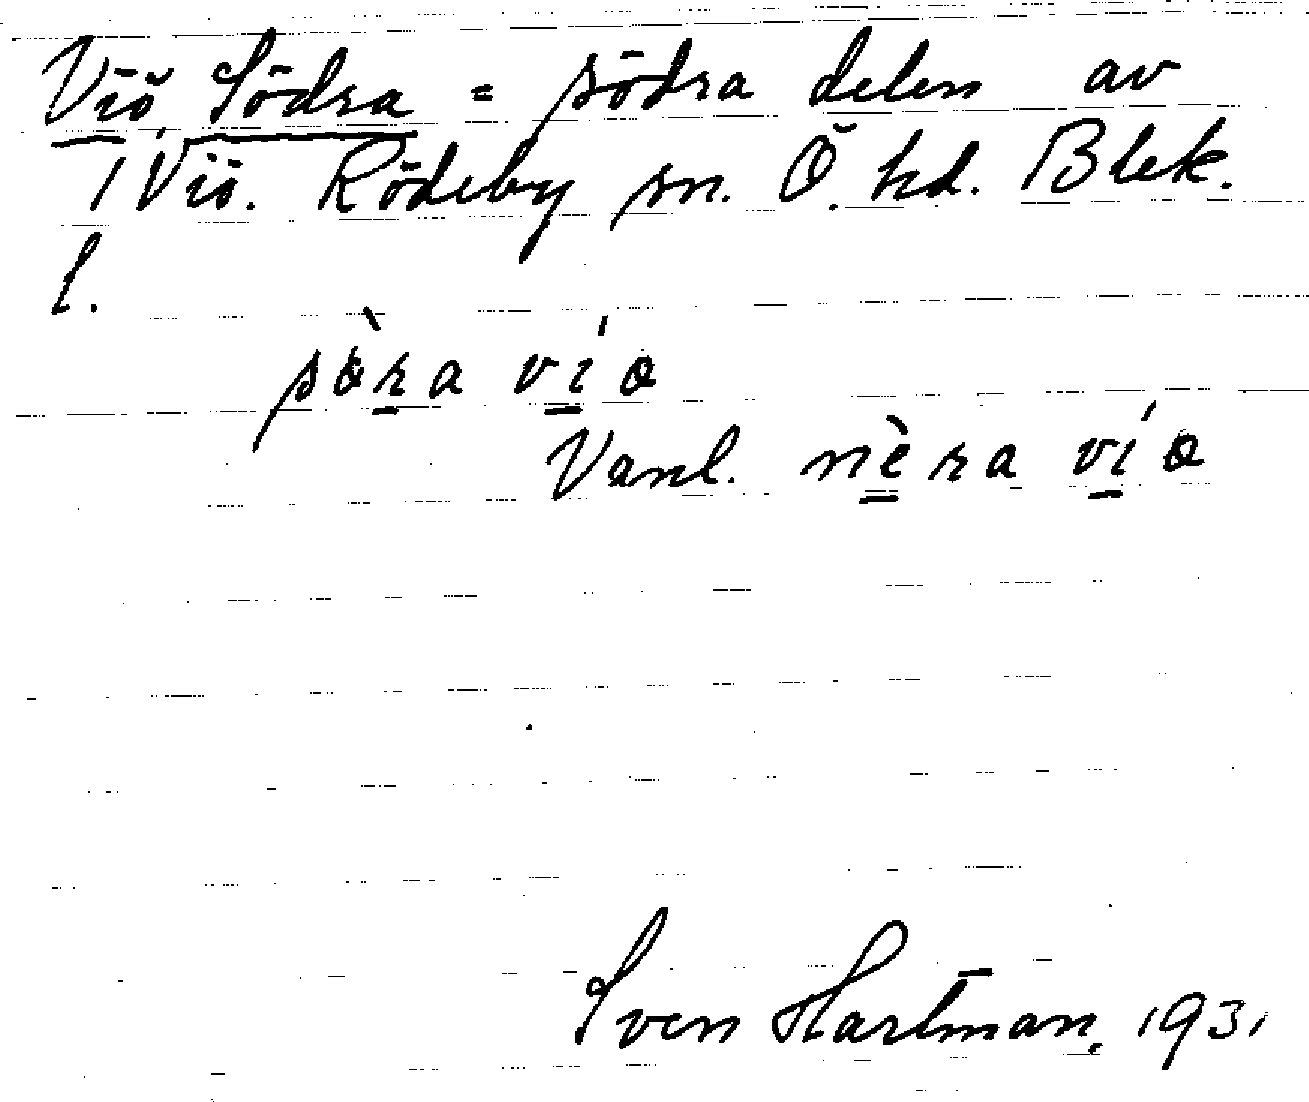 Viö Södra = södra delen av
/ Viö. Rödeby sn. Ö. hd. Blek.
l.
sò̱ra ví̱ɵ
Vanl. nè̳ra ví̱ɵ
Sven Hartman, 1931